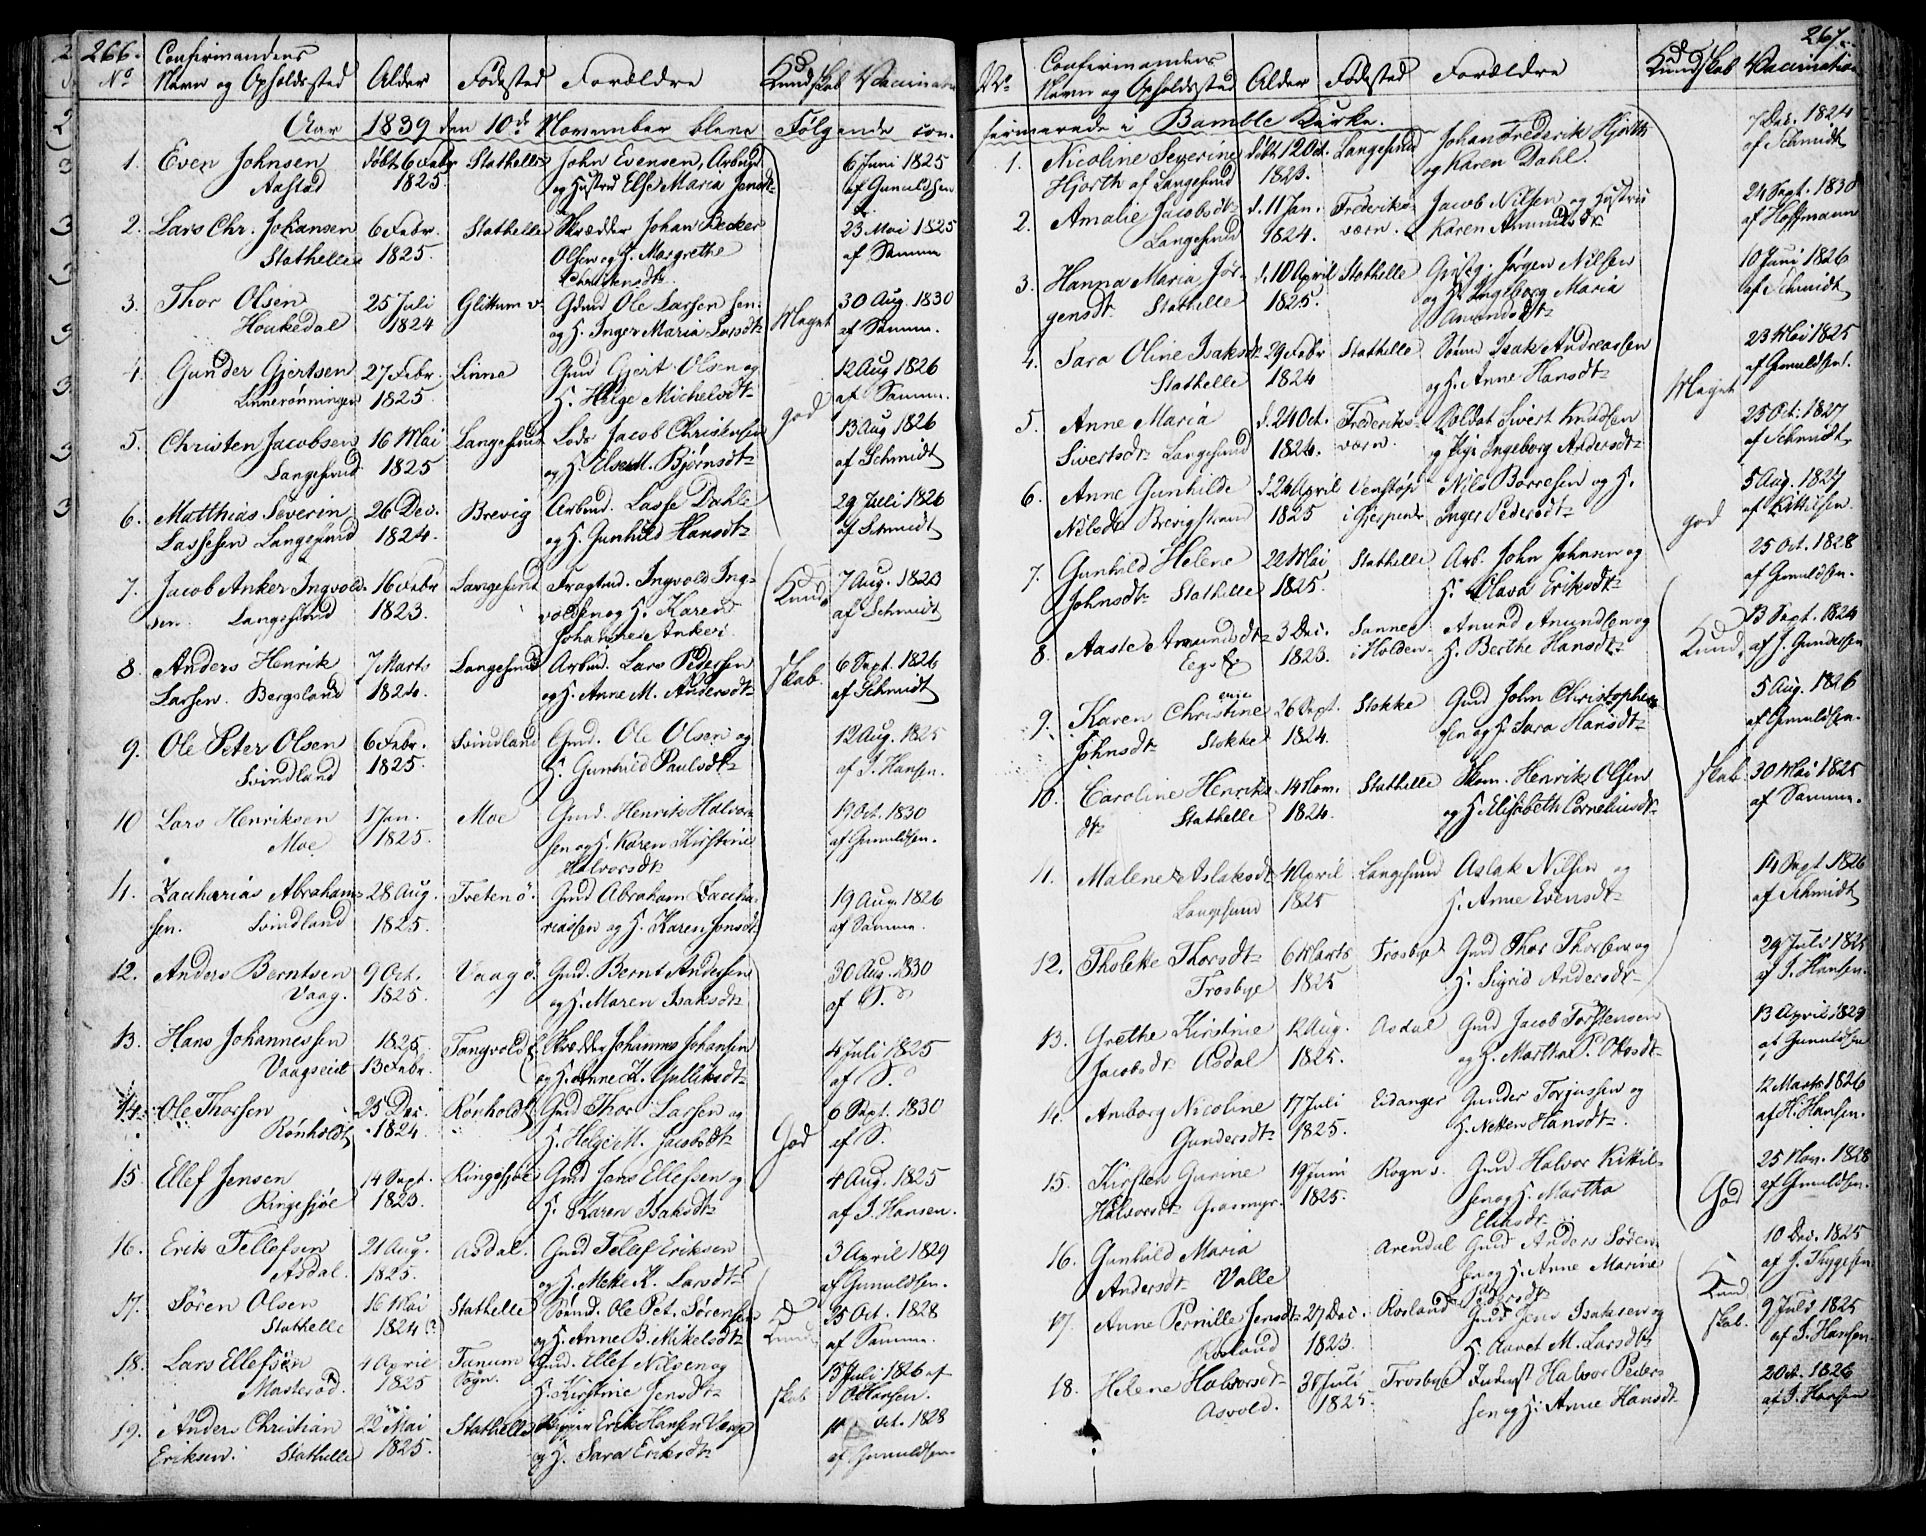 266.
Confirmandens
No Navn og Opholdssted Alder Fødested Forældre Kundskab Vaccination
Aar 1839 den 10de November bleve Følgende con-
1. Even Johnsen født 6 Febr Stathelle John Evensen, Arbmd 6 Juni 1825
Aastad 1825. og Hustru Else Maria Jensdtr af Gunuldsen
2. Lars Chr. Johansen 6 Febr. Stathelle Skrædder Johan Becker 23 Mai 1825
Stathelle 1825. Olsen og H. Margrethe af Samme
Christensdtr
3. Thor Olsen 25 Juli Glittum v. Gdmd Ole Larsen sen. 30 Aug. 1830
Houkedal 1824 og H. Inger Maria Larsdtr Meget af Samme.
4. Gunder Gjertsen 27 Febr. Linne Gmd Gjert Olsen og 12 Aug 1826
Linnerønningen 1825. H. Helge Michelsdtr af Samme.
god
5. Christen Jacobsen 16 Mai Langesund Lods Jacob Christensen 13 Aug 1826
Langesund 1825 og H. Else M. Bjørnsdtr af Schmidt
6. Matthias Severin 26 Dec. Brevig Arbmd. Lasse Dahle 29 Juli 1826
Lassesen Langesund 1824. og H. Gunhild Hansdtr af Schmidt
7. Jacob Anker Ingvold- 16 Febr Langesund Fragtmd. Ingvold Ing- Kund- 7 Aug. 1823
sen. Langesund 1823. voldsen og H. Karen af Schmidt
Johannes Anker.
8. Anders Henrik 7 Marts Langesund Arbmd. Lars Pedersen skab. 6 Sept. 1826
Larsen. Bergsland 1824. og H. Anne M. Andersdtr af Schmidt
9. Ole Peter Olsen 6 Febr. Svindland Gmd. Ole Olsen og 12 Aug. 1825
Svindland 1825. H. Gunhild Paulsdtr af I. Hansen.
10 Lars Henriksen 1 Jan. Moe Gmd. Henrik Halvor- 19 Oct. 1830
Moe 1825. sen og H. Karen Kirstine af Gunuldsen.
Halvorsdtr
11. Zacharias Abraham- 28 Aug. Tretenø. Gmd Abraham Zacha- 19 Aug. 1826
sen. Svindland 1825. riassen og H. Karen Jensdtr af Samme.
12. Anders Berntsen 9 Oct. Vaagø. Gmd. Bernt Andersen 30 Aug. 1830
Vaag. 1825. og H. Maren Isaksdtr af S.
13. Hans Johannessen 1825. Tangvold Skrædder Johannes Johansen 4 Juli 1825
Vaagseid 13 Febr. og H. Anne K. Gulliksdtr af S.
14. Ole Thorsen 25 Dec. Rønholdt Gmd Thor Larsen og 6 Sept. 1830
Rønholdt 1824. H. Helge M. Jacobsdtr God af S.
15. Ellef Jensen 14 Sept. Ringsjøe Gmd Jens Ellefsen og 4 Aug. 1825
Ringesjøe 1823. H. Karen Isaksdtr af I. Hansen.
16. Erik Tellefsen 21 Aug. Asdal. Gmd Tellef Eriksen 3 April 1829
Asdal. 1825. og H. Meke K. Larsdtr af Gunuldsen.
17. Søren Olsen 16 Mai Stathelle Sømd. Ole Pet. Sørensen Kund- 25 Oct. 1828
Stathelle 1824 og H. Anne B. Mikelsdtr af Samme.
18. Lars Ellefsen 4 April Tanum Gmd. Ellef Nilsen og 15 Juli 1826 af
1825 Sogn. H. Kirstine Jensdtr skab Hansen.
19. Anders Christian 22 Mai Stathelle Skipper Erik Hansen Oct. 1828
Eriksen. Stathelle 1825. og H. Sara Eriksdtr af Gunuldsen.
267.
Confirmandens
No Navn og Opholdssted Alder Fødested Forældre Kundskab Vaccination
firmerede i Bamble Kirke.
1. Nicoline Severine født 12 Oct. Langesund Johan Frederik Hjorth 7 Dec. 1824
Hjorth af Langesund 1823. og Karen Dahl. af Schmidt
2. Amalie Jacobsdtr d. 11 Jan. Frederiks- Jacob Nilsen og Hustru 24 Sept. 1830
Langesund 1824. værn. Karen Amundsdtr af Hoffmann
3. Hanna Maria Jør- d. 10 April Stathelle Gjestg. Jørgen Nilsen 10 Juni 1826
gensdt. Stathelle 1825. og H. Ingeborg Maria af Schmidt
Amundsdtr
4. Sara Oline Isaksdtr 29 Febr Stathelle Sømd Isak Andreassen 23 Mai 1825
Stathelle 1824 og H. Anne Hansdtr af Gunuldsen.
Meget
5. Anne Maria d. 24 Oct. Frederiks- Soldat Sivert Knudsen 25 Oct. 1827
Sivertsdtr Langesund 1824. værn. og Pige Ingeborg Andersdtr af Schmidt
6. Anne Gunhilde d. 26 April Venstøp Nils Børresen og H. 5 Aug. 1827
Nilsdtr Brevigstrand 1825 i Gjerpen Inger Pedersdtr god af Kittilsen.
7. Gunhild Helene 22 Mai Stathelle Arb. John Johnsen og 25 Oct. 1828
Johnsdtr Stathelle 1825. H. Olava Eriksdtr af Gunuldsen.
8. Aaste Amundsdtr 3 Dec. Sannes Amund Amundsen og Kund- 13 Sept. 1824
1823. i Holden. H. Berthe Hansdtr af J. Gundersen
9. Karen Christine 26 Sept. Stokke Gmd John Christopher- 5 Aug. 1826
Johnsdtr Stokke 1824. sen og H. Sara Hansdtr af Gunuldsen.
10. Caroline Henriks- 14 Nov. Stathelle Skom. Henrik Olsen skab 30 Mai 1825
dtr Stathelle 1824. og H. Elisabeth Corneliusdtr af Samme.
11. Malene Aslaksdtr 4 April Langesund Aslak Nilsen og 14 Sept 1826
Langesund 1825 H. Anne Evensdtr af Schmidt
12. Tholeke Thorsdtr 6 Marts Trosbye Gmd Thor Thorsen og 29 Juli 1825
Trosbye 1825 H. Sigrid Andersdtr af I. Hansen.
13. Grethe Kirstine 12 Aug. Asdal Gmd Jacob Torstensen 13 April 1829
Jacobsdtr Asdal 1825. og H. Martha P. Olesdtr af Gunuldsen
14. Anborg Nicoline 17 Juli Eidanger Gunder Torjussen og 12 Marts 1826
Gundersdtr 1825. H. Netken Hansdtr. af H. Hansen.
15. Kirsten Gurine 19 Juni Rogn v. Gmd Halvor Kittil- 25 Nov. 1828
Halvorsdtr Grasmyr. 1825. sen og H. Martha God af Gunuldsen.
Eliksdtr
16. Gunhild Maria Arendal Gmd Anders Søren- 10 Dec. 1825
Andersdtr Valle sen og H. Anne Marine Kund- af J. Tryggesen.
Pedersdtr
17. Anne Pernille Jensdtr 27 Dec. Rosland Gmd Jens Isaksen og 9 Juli 1825
Rosland 1823. H. Aavet M. Larsdtr skab. af I. Hansen.
18. Helene Halvorsdtr 31 Juli Trosbye Inderst Halvor Peder- 20 1826
Asvold. 1825. sen og H. Anne Hansdtr af I. Hansen